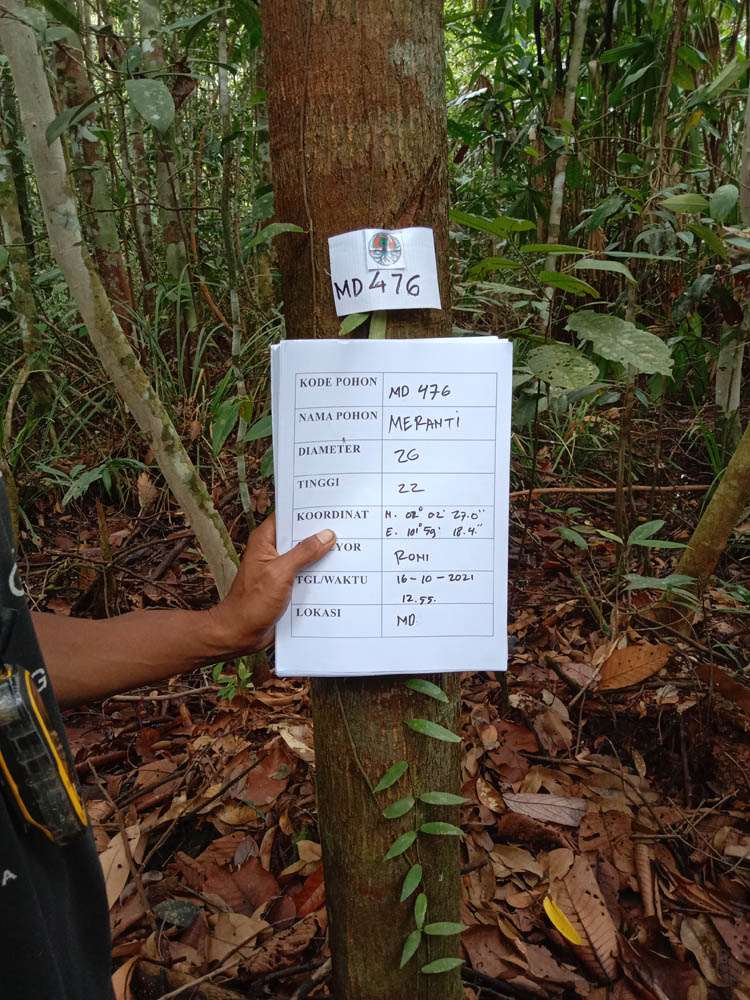 MD 476
KODE POHON MD 476
NAMA POHON MERANTI
DIAMETER 26
TINGGI 22
KOORDINAT N. 02° 02' 27.0''
E. 101° 59' 18.4''
YOR RONI
TGL/WAKTU 16-10-2021
12.55.
LOKASI MD